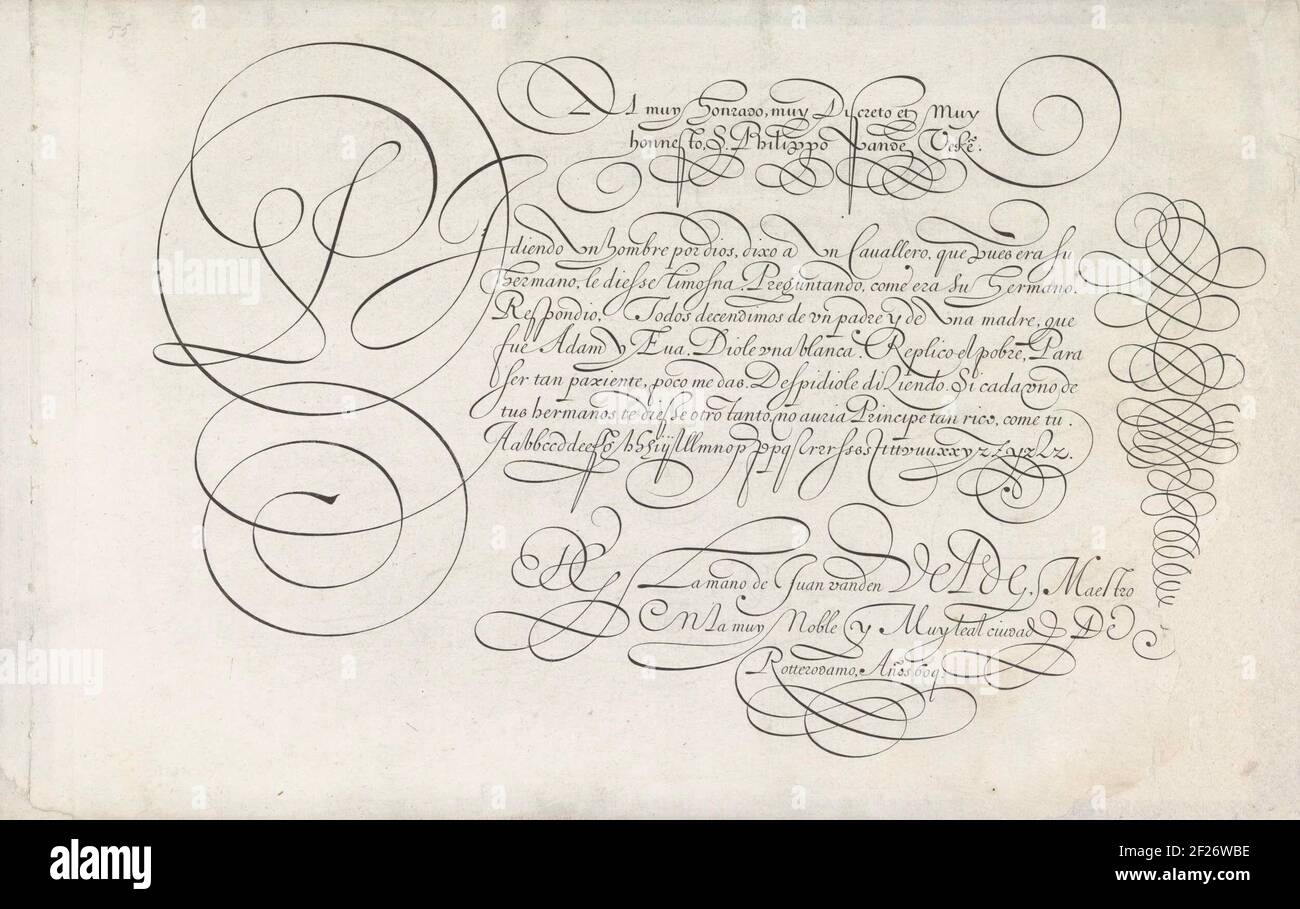 55
Al muy honrado, muy Discreto et Muy
honnesto, S. Philippo Vande
Pidiendo vn hombre por dios, dixo a vn Cavallero, que pues era su
hermano, le diesse limosna. Preguntando, come era su hermano.
Respondio. Todos decendimos de vn padre y de vna madre, que
fue Adam y Eua. Diole vna blanca. Replico el pobre, Para
ser tan paxiente, poco me das. Despidiole diziendo. Si cada vno de
tus hermanos te diesse otro tanto, no auria Principe tan rico, come tu.
De La mano de Juan vanden Velde, Maestro
En la muy Noble y Muy leal ciudad De
Rotterodamo, Años 609.
alamy
alamy
Image ID: 2F26WBE
www.alamy.com